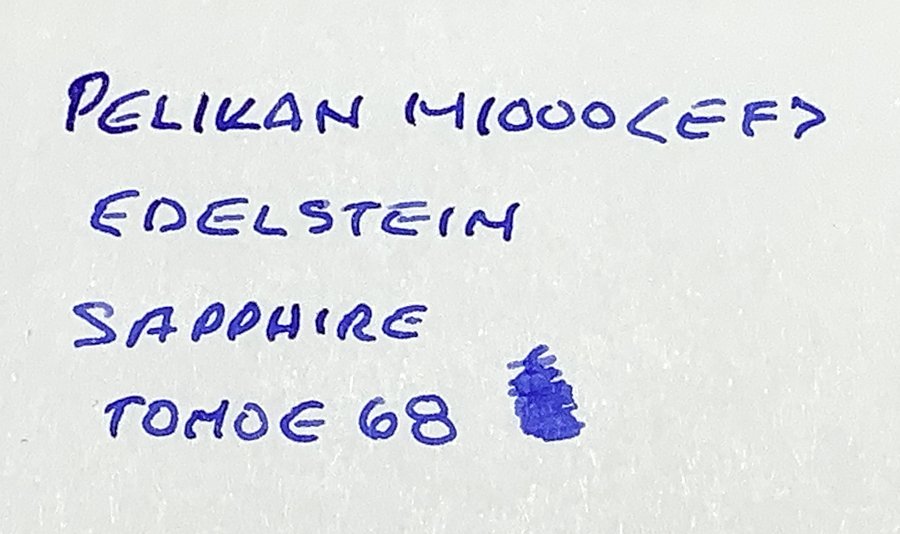 PELIKAN M1000 <EF>
EDELSTEIN
SAPPHIRE
TOMOE 68